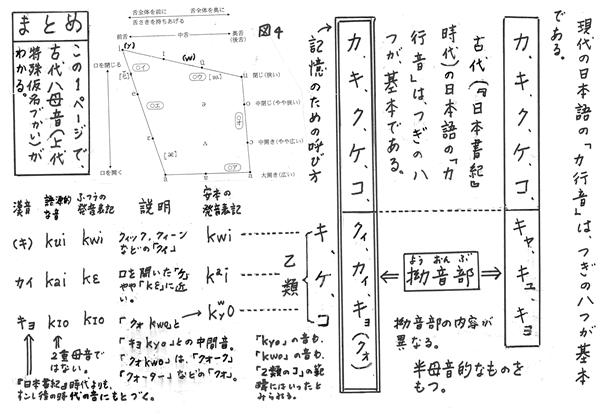 現代の日本語の「カ行音」は、つぎの八つが基本
である。
カ、キ、ク、ケ、コ、キャ、キュ、キョ
古代(『日本書紀』
時代)の日本語の「カ
行音」は、つぎの八
つが、基本である。
カ、キ、ク、ケ、コ、クィ、カィ、キョ(クォ)
拗音部
よう おん ぶ
拗音部の内容が
異なる。
半母音的なものを
もつ。
記憶のための呼び方
乙類
キ、
ケ、
コ
図4
舌全体を前に
舌全体を奥に
舌さきを持ちあげる
前舌
中舌
奥舌
(後舌)
(y)
(w)
口を閉じる
口を開く
閉じ(狭い)
中閉じ(やや狭い)
中開き(やや広い)
大開き(広い)
○イ
○ウ
○エ
○オ
○ア
まとめ
この1ページで、
古代八母音(上代
特殊仮名づかい)が
わかる。
漢音
語源的な音
ふつうの発音表記
説明
安本の発音表記
(キ) kui kwi クィック、クィーンなどの「クィ」 kwi
カイ kai kɛ 口を開いた「ケ」。やや「kɛ」に近い。 kᵃi
キョ kɪo kɪo 「クォ kwo」と「キョ kyo」との中間音。「クォ kwo」は、「クォーク」「クォーター」などの「クォ」。 kʷyo
2重母音ではない。
『日本書紀』時代よりも、
すこし後の時代の音にもとづく。
「kyo」の音も、
「kwo」の音も、
「乙類のコ」の範
疇にはいったと
みられる。